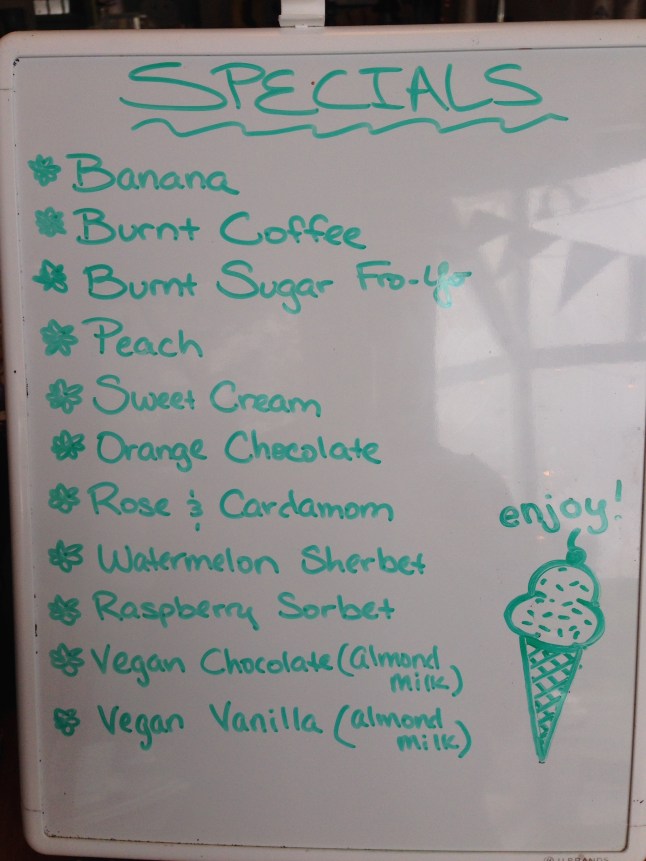 SPECIALS
Banana
Burnt Coffee
Burnt Sugar Fro-Yo
Peach
Sweet Cream
Orange Chocolate
Rose & Cardamom
enjoy!
Watermelon Sherbet
Raspberry Sorbet
Vegan Chocolate (almond
milk)
Vegan Vanilla (almond
milk)